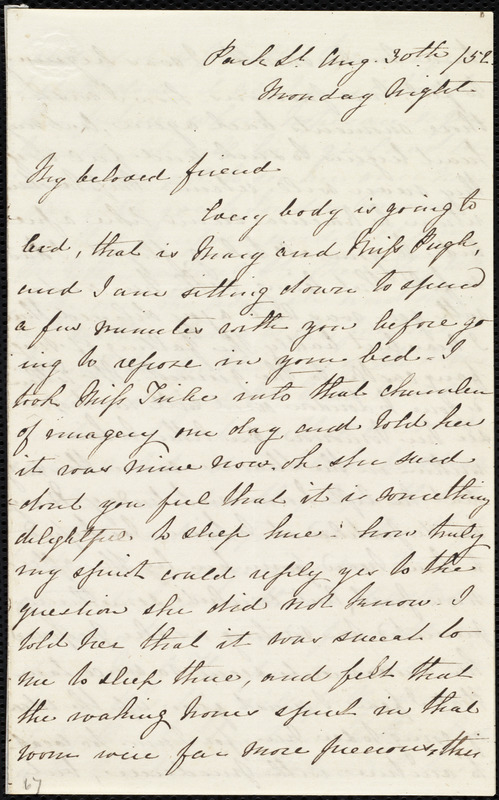 Park St. Aug. 30th /52.
Monday Night
My beloved friend
Every body is going to
bed, that is Mary and Miss Pugh,
and I am sitting down to spend
a few minutes with you before go
ing to repose in your bed. I
took Miss into that chamber
of imagery one day and told her
it was mine now. oh. she said
dont you feel that it is something
delightful to sleep here! how truly
my spirit could reply yes to the
question she did not know. I
told her that it was sweet to
me to sleep there, and felt that
the waking hours spent in that
room were far more precious, this
67